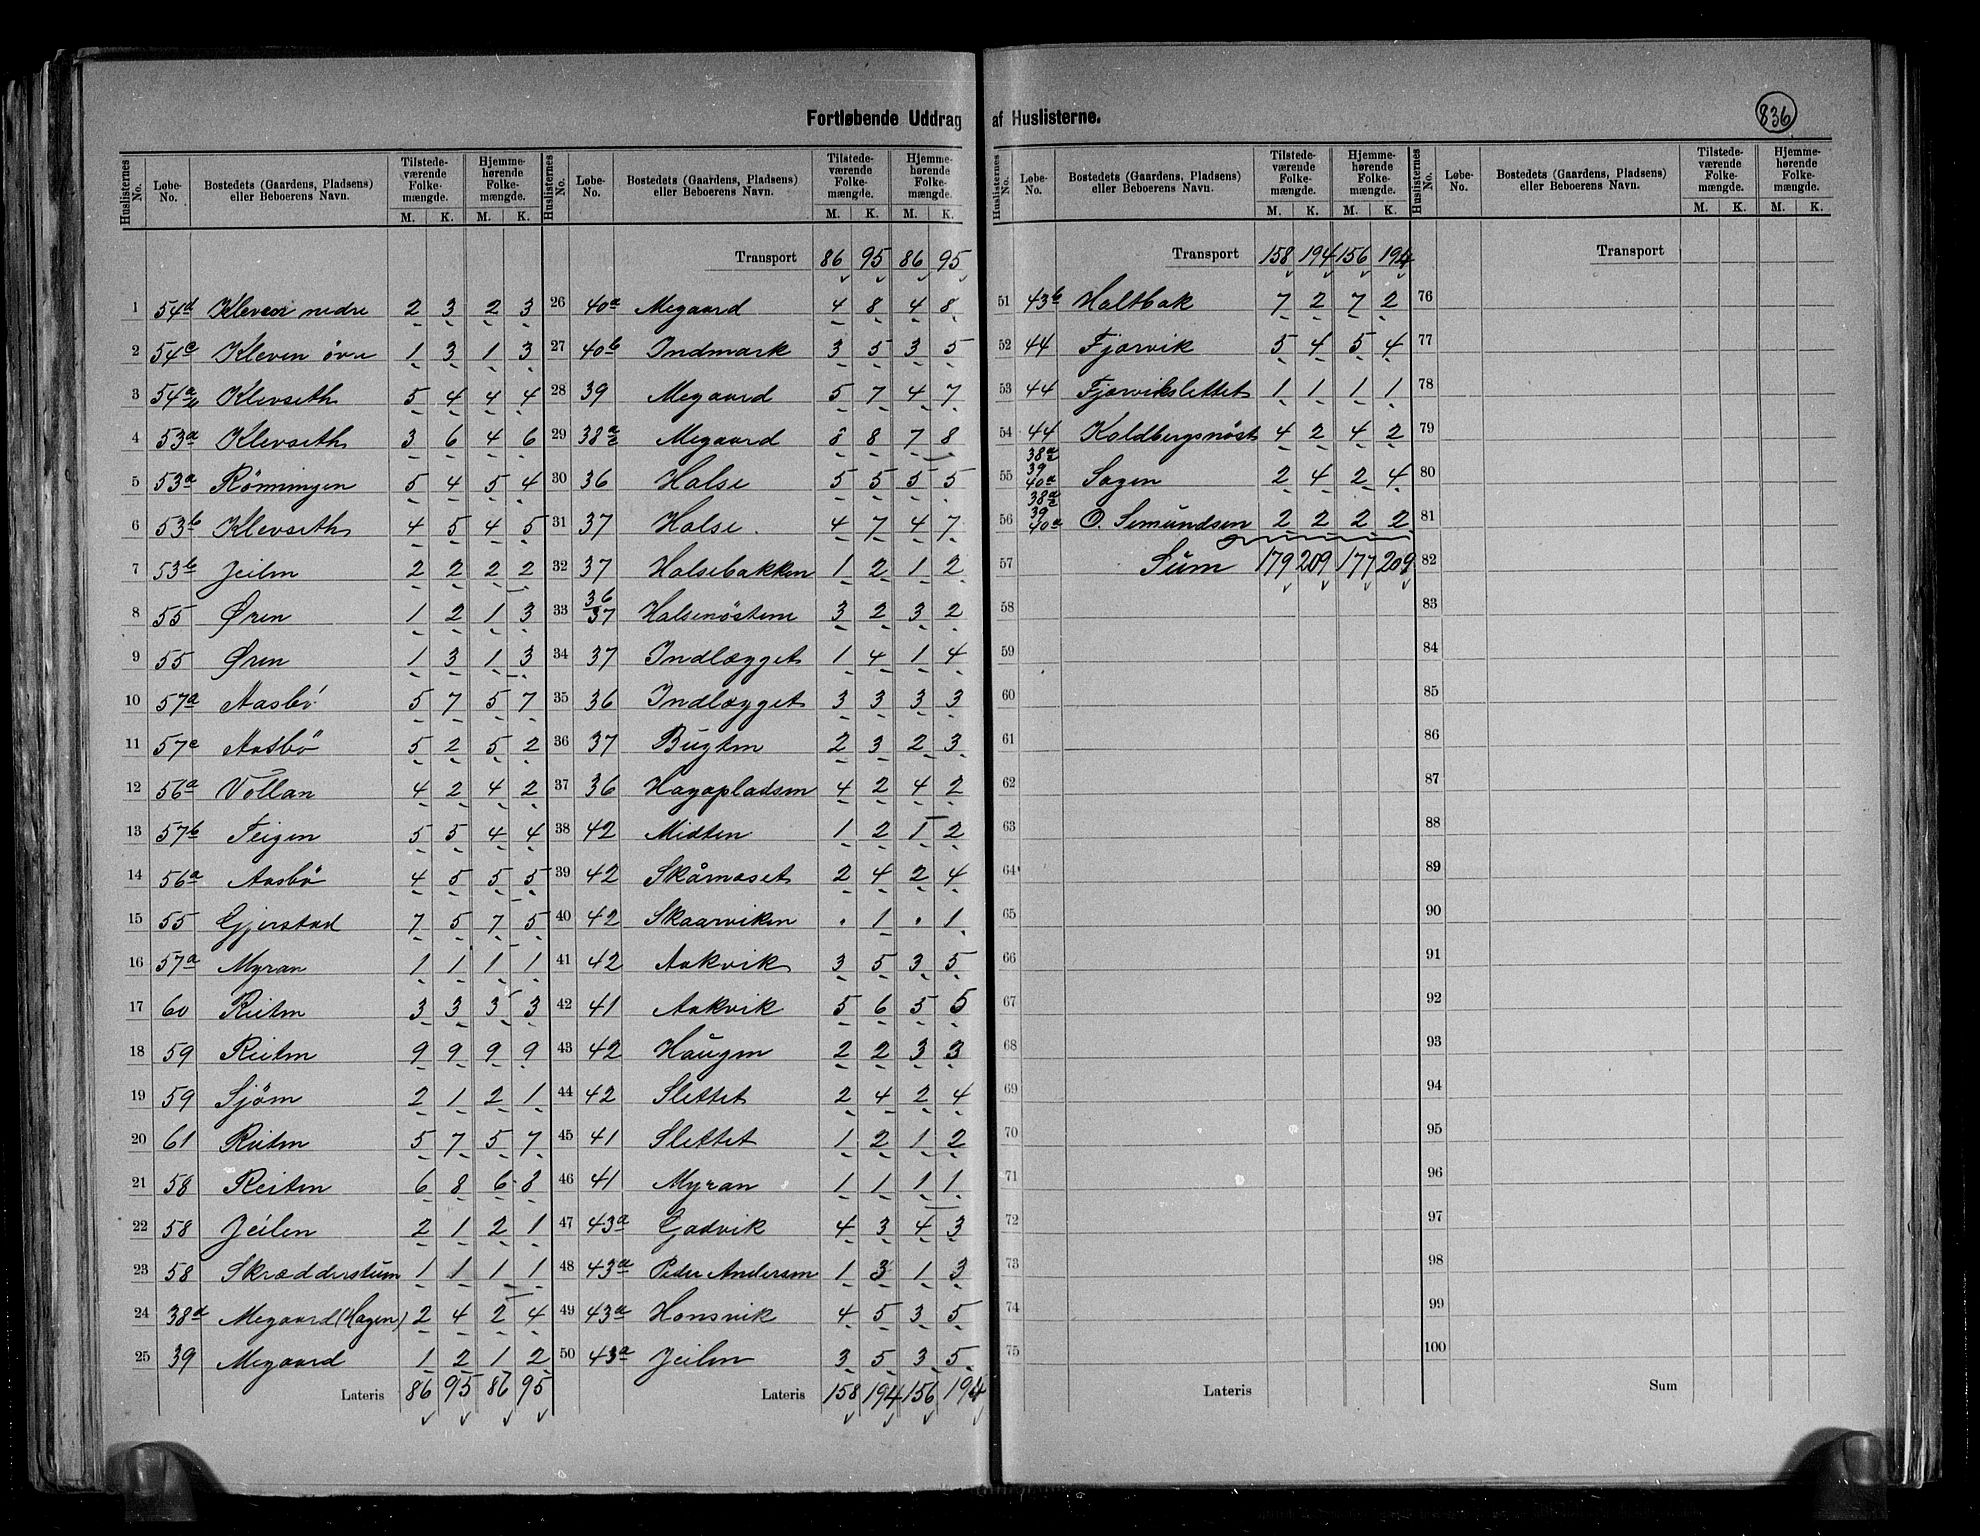 Fortløbende Uddrag af Huslisterne.
836
Huslisternes No. | Løbe-No. | Bostedets (Gaardens, Pladsens) eller Beboerens Navn. | Tilstedeværende Folkemængde. M. K. | Hjemmehørende Folkemængde. M. K.
1 54d Kleven nedre 2 3 2 3
2 54c Kleven övre 1 3 1 3
3 54a Klevseth 5 4 4 4
4 53a Klevseth 3 6 4 6
5 53a Rönningen 5 4 5 4
6 53b Klevseth 4 5 4 5
7 53b Jeilen 2 2 2 2
8 55 Øren 1 2 1 3
9 55 Øren 1 3 1 3
10 57a Aasbö 5 7 5 7
11 57c Aasbö 5 2 5 2
12 56a Vollan 4 2 4 2
13 57b Teigen 5 5 4 4
14 56a Aasbö 4 5 5 5
15 55 Gjerstad 7 5 7 5
16 57a Myran 1 1 1 1
17 60 Reiten 3 3 3 3
18 59 Reiten 9 9 9 9
19 59 Sjöen 2 1 2 1
20 61 Reiten 5 7 5 7
21 58 Reiten 6 8 6 8
22 58 Jeilen 2 1 2 1
23 58 Skrædderstuen 1 1 1 1
24 38d Megaard (Hagen) 2 4 2 4
25 39 Megaard 1 2 1 2
Lateris 86 95 86 95
Huslisternes No. | Løbe-No. | Bostedets (Gaardens, Pladsens) eller Beboerens Navn. | Tilstedeværende Folkemængde. M. K. | Hjemmehørende Folkemængde. M. K.
Transport 86 95 86 95
26 40a Megaard 4 8 4 8
27 40b Indmark 3 5 3 5
28 39 Megaard 5 7 4 7
29 38a2 Megaard 8 8 7 8
30 36 Halse 5 5 5 5
31 37 Halse 4 7 4 7
32 37 Halsebakken 1 2 1 2
33 36 37 Halsenösten 3 2 3 2
34 37 Indlægget 1 4 1 4
35 36 Indlægget 3 3 3 3
36 37 Bugten 2 3 2 3
37 36 Hagapladsen 4 2 4 2
38 42 Midten 1 2 1 2
39 42 Skårnaset 2 4 2 4
40 42 Skaarviken . 1 . 1
41 42 Aakvik 3 5 3 5
42 41 Aakvik 5 6 5 5
43 42 Haugen 2 2 3 3
44 42 Slettet 2 4 2 4
45 41 Slettet 1 2 1 2
46 41 Myran 1 1 1 1
47 43a Gadvik 4 3 4 3
48 43a Peder Andersen 1 3 1 3
49 43a Honsvik 4 5 3 5
50 43a Jeilen 3 5 3 5
Lateris 158 194 156 194
Huslisternes No. | Løbe-No. | Bostedets (Gaardens, Pladsens) eller Beboerens Navn. | Tilstedeværende Folkemængde. M. K. | Hjemmehørende Folkemængde. M. K.
Transport 158 194 156 194
51 43b Haltbak 7 2 7 2
52 44 Fjærvik 5 4 5 4
53 44 Fjærvikslettet 1 1 1 1
54 44 Koldbergsnöst 4 2 4 2
55 38a2 39 40a Sagen 2 4 2 4
56 38a2 39 40a O. Semundsen 2 2 2 2
57 Sum 179 209 177 209
58
59
60
61
62
63
64
65
66
67
68
69
70
71
72
73
74
75
Lateris
Huslisternes No. | Løbe-No. | Bostedets (Gaardens, Pladsens) eller Beboerens Navn. | Tilstedeværende Folkemængde. M. K. | Hjemmehørende Folkemængde. M. K.
Transport
76
77
78
79
80
81
82
83
84
85
86
87
88
89
90
91
92
93
94
95
96
97
98
99
100
Sum